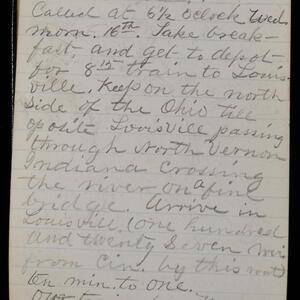 Called at 6½ oclock Wed.
morn. 16th. Take break-
fast, and get to depot
for 8 15 train to Louis-
ville. Keep on the north
side of the Ohio till
oposite Louisville passing
through North Vernon
Indiana Crossing
the river on a fine
bridge. Arrive in
Louisville. (One hundred
and twenty Seven mi.
from Cin. by this rout)
ten min. to one.